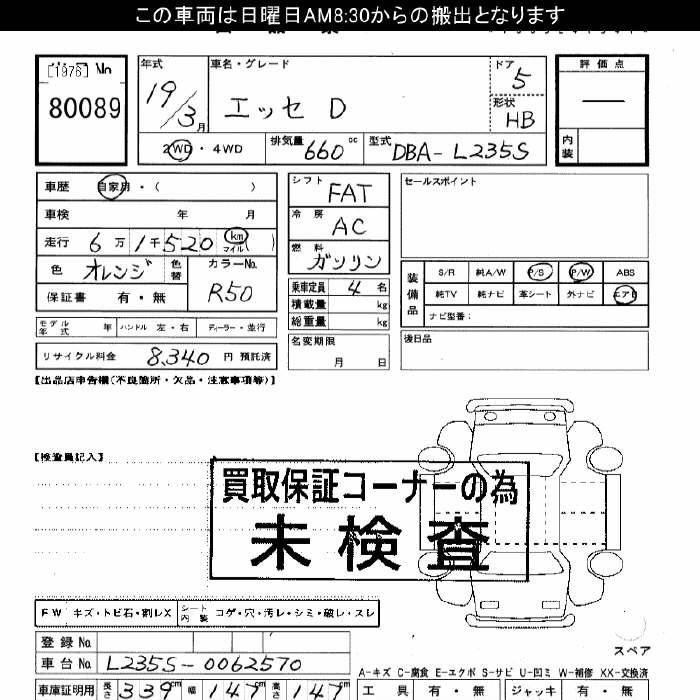 この車両は日曜日AM8:30からの搬出となります
[1976] No
80089
年式
19/3月
車名・グレード
エッセ D
ドア
5
形状
HB
評価点
—
内装
2WD・4WD
排気量 660cc
型式 DBA-L235S
車歴 自家用・( )
車検 年 月
走行 6万1千520 km マイル( )
色 オレンジ 色替
カラーNo. R50
保証書 有・無
シフト FAT
冷房 AC
燃料 ガソリン
乗車定員 4名
積載量 kg
総重量 kg
セールスポイント
装備品
S/R 純A/W P/S P/W ABS
純TV 純ナビ 革シート 外ナビ エアB
ナビ型番:
モデル年式 年 ハンドル 左・右 ディーラー・並行
リサイクル料金 8,340 円 預託済
名変期限 月 日
後日品
【出品店申告欄(不良箇所・欠品・注意事項等)】
【検査員記入】
買取保証コーナーの為
未検査
FW キズ・トビ石・割レX
シート内装 コゲ・穴・汚レ・シミ・破レ・スレ
スペア
登録No.
車台No. L235S-0062570
A-キズ C-腐食 E-エクボ S-サビ U-凹ミ W-補修 XX-交換済
車庫証明用 長さ 339cm 幅 147cm 高さ 147cm
工具 有・無 ジャッキ 有・無